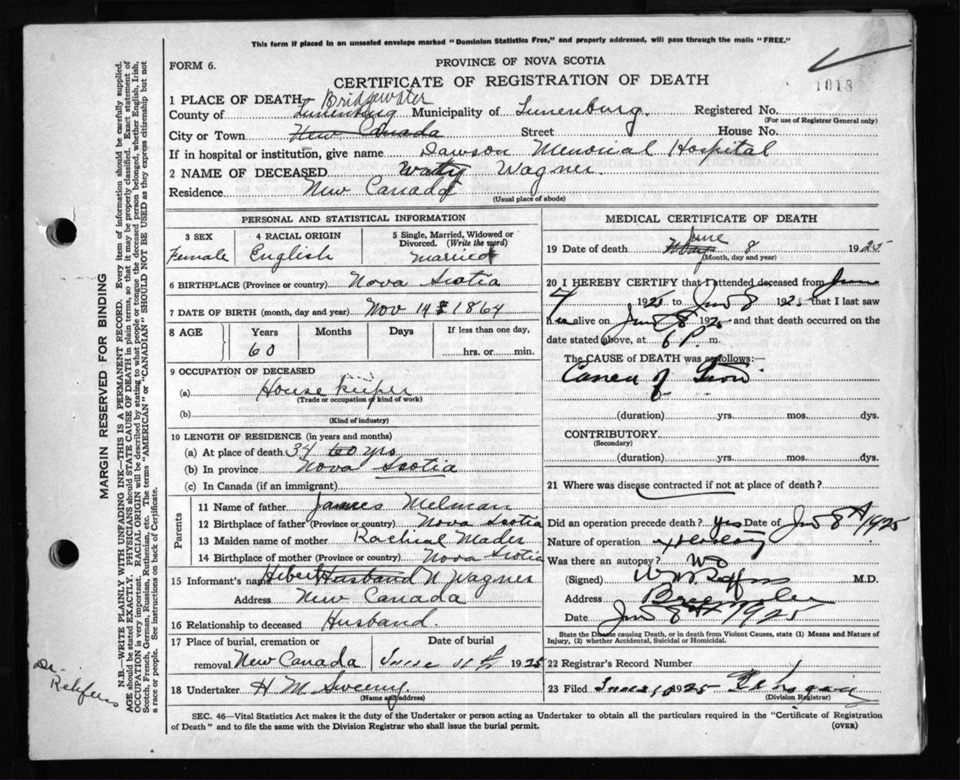 This form if placed in an unsealed envelope marked "Dominion Statistics Free," and properly addressed, will pass through the mails "FREE."
FORM 6.
PROVINCE OF NOVA SCOTIA
CERTIFICATE OF REGISTRATION OF DEATH
1018
1 PLACE OF DEATH Bridgewater
County of Lunenburg Municipality of Lunenburg. Registered No.
(For use of Registrar General only)
City or Town New Canada Street House No.
If in hospital or institution, give name Dawson Memorial Hospital
2 NAME OF DECEASED Wagner.
Residence New Canada
(Usual place of abode)
PERSONAL AND STATISTICAL INFORMATION
3 SEX 4 RACIAL ORIGIN 5 Single, Married, Widowed or Divorced. (Write the word)
Female English Married
6 BIRTHPLACE (Province or country) Nova Scotia
7 DATE OF BIRTH (month, day and year) Nov 14 1864
8 AGE Years Months Days If less than one day,
60 hrs. or min.
9 OCCUPATION OF DECEASED
(a) House keeper
(Trade or occupation or kind of work)
(b)
(Kind of industry)
10 LENGTH OF RESIDENCE (in years and months)
(a) At place of death 34 60 yrs
(b) In province Nova Scotia
(c) In Canada (if an immigrant)
Parents
11 Name of father James Melman
12 Birthplace of father (Province or country) Nova Scotia
13 Maiden name of mother Rachial Mader
14 Birthplace of mother (Province or country) Nova Scotia
15 Informant's name Hibert Husband N Wagner
Address New Canada
16 Relationship to deceased Husband.
17 Place of burial, cremation or removal New Canada Date of burial June 1925
18 Undertaker H M Sweeny.
(Name and address)
MEDICAL CERTIFICATE OF DEATH
19 Date of death May June 8 1925
(Month, day and year)
20 I HEREBY CERTIFY that I attended deceased from June
7 1925 to Jun 8 1925 that I last saw
h er alive on Jun 8 1925 and that death occurred on
date stated above, at 6 P. m.
The CAUSE OF DEATH was as follows:
(duration) yrs. mos. dys.
CONTRIBUTORY
(Secondary)
(duration) yrs. mos. dys.
21 Where was disease contracted if not at place of death?
Did an operation precede death? yes Date of Jun 8th 1925
Nature of operation
Was there an autopsy? No
(Signed) M.D.
Address
Date Jun 8th 1925
State the Disease causing Death, or in death from Violent Causes, state (1) Means and Nature of Injury, (2) whether Accidental, Suicidal or Homicidal.
22 Registrar's Record Number
23 Filed 1925
(Division Registrar)
SEC. 46—Vital Statistics Act makes it the duty of the Undertaker or person acting as Undertaker to obtain all the particulars required in the "Certificate of Registration
of Death" and to file the same with the Division Registrar who shall issue the burial permit.
(OVER)
MARGIN RESERVED FOR BINDING
N.B.—WRITE PLAINLY WITH UNFADING INK—THIS IS A PERMANENT RECORD. Every item of information should be carefully supplied.
AGE should be stated EXACTLY. PHYSICIANS should STATE CAUSE OF DEATH in plain terms, so that it may be properly classified. Exact statement of
OCCUPATION is very important. RACIAL ORIGIN will be described by stating to what people or tongue the deceased person belonged, whether English, Irish,
Scotch, French, German, Russian, Ruthenian, etc. The terms "AMERICAN" or "CANADIAN" SHOULD NOT BE USED as they express citizenship but not
a race or people. See instructions on back of Certificate.